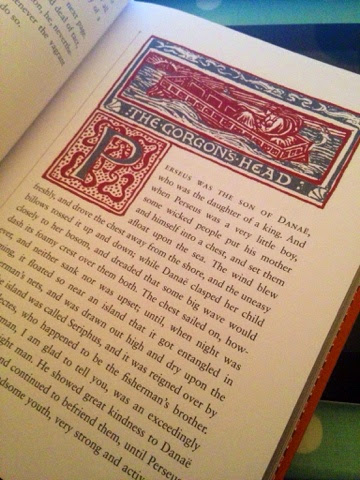 next page,
deal of fact,
so, he, neverthe-
enever the vagrant
do so.
THE GORGONS HEAD
PERSEUS WAS THE SON OF DANAË,
who was the daughter of a king. And
when Perseus was a very little boy,
some wicked people put his mother
and himself into a chest, and set them
afloat upon the sea. The wind blew
freshly, and drove the chest away from the shore, and the uneasy
billows tossed it up and down; while Danaë clasped her child
closely to her bosom, and dreaded that some big wave would
dash its foamy crest over them both. The chest sailed on, how-
ever, and neither sank nor was upset; until, when night was
ming, it floated so near an island that it got entangled in
erman's nets, and was drawn out high and dry upon the
e island was called Seriphus, and it was reigned over by
ectes, who happened to be the fisherman's brother.
man, I am glad to tell you, was an exceedingly
ght man. He showed great kindness to Danaë
nd continued to befriend them, until Perseus
dsome youth, very strong and activ